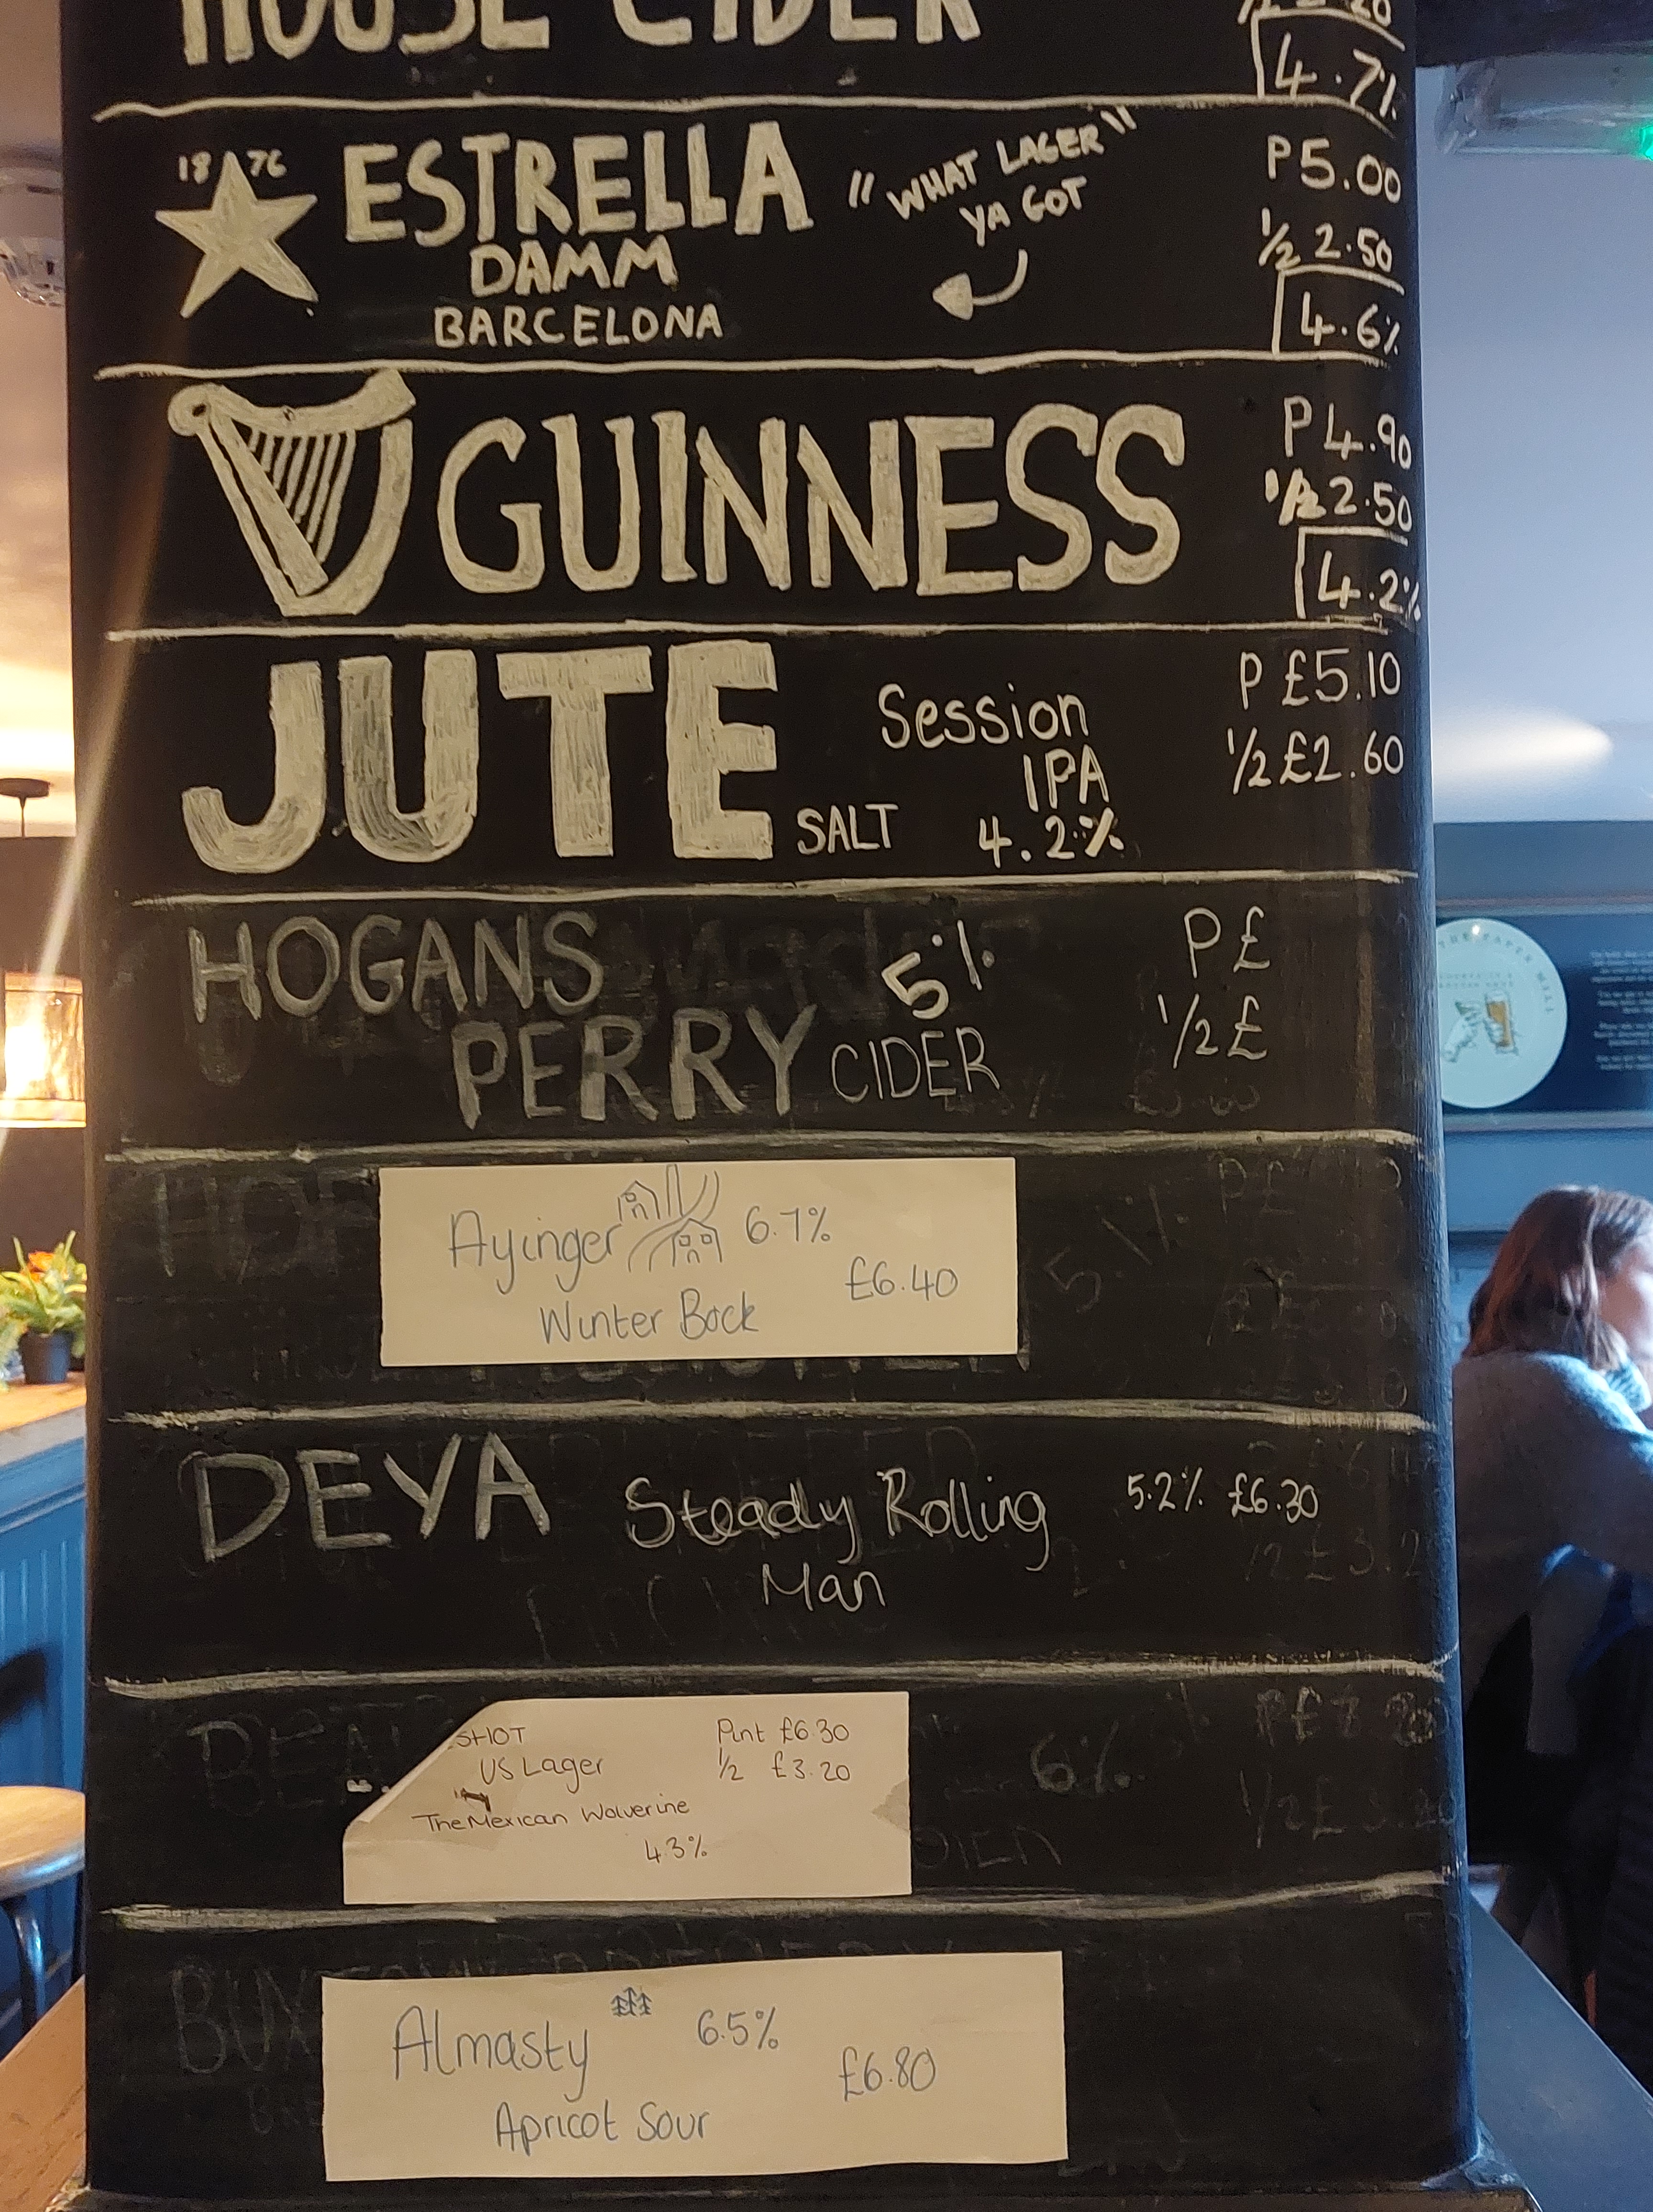 HOUSE CIDER
4.7%
18 76
ESTRELLA
DAMM
BARCELONA
"WHAT LAGER"
YA GOT
P5.00
1/2 2.50
4.6%
GUINNESS
P4.90
1/2 2.50
4.2%
JUTE
SALT
Session
IPA
4.2%
P £5.10
1/2 £2.60
HOGANS
PERRY CIDER
5%
P £
1/2 £
Ayinger 6.7%
£6.40
Winter Bock
DEYA Steady Rolling
Man
5.2% £6.30
SHOT Pint £6.30
US Lager 1/2 £3.20
The Mexican Wolverine
4.3%
6%
Almasty 6.5%
£6.80
Apricot Sour